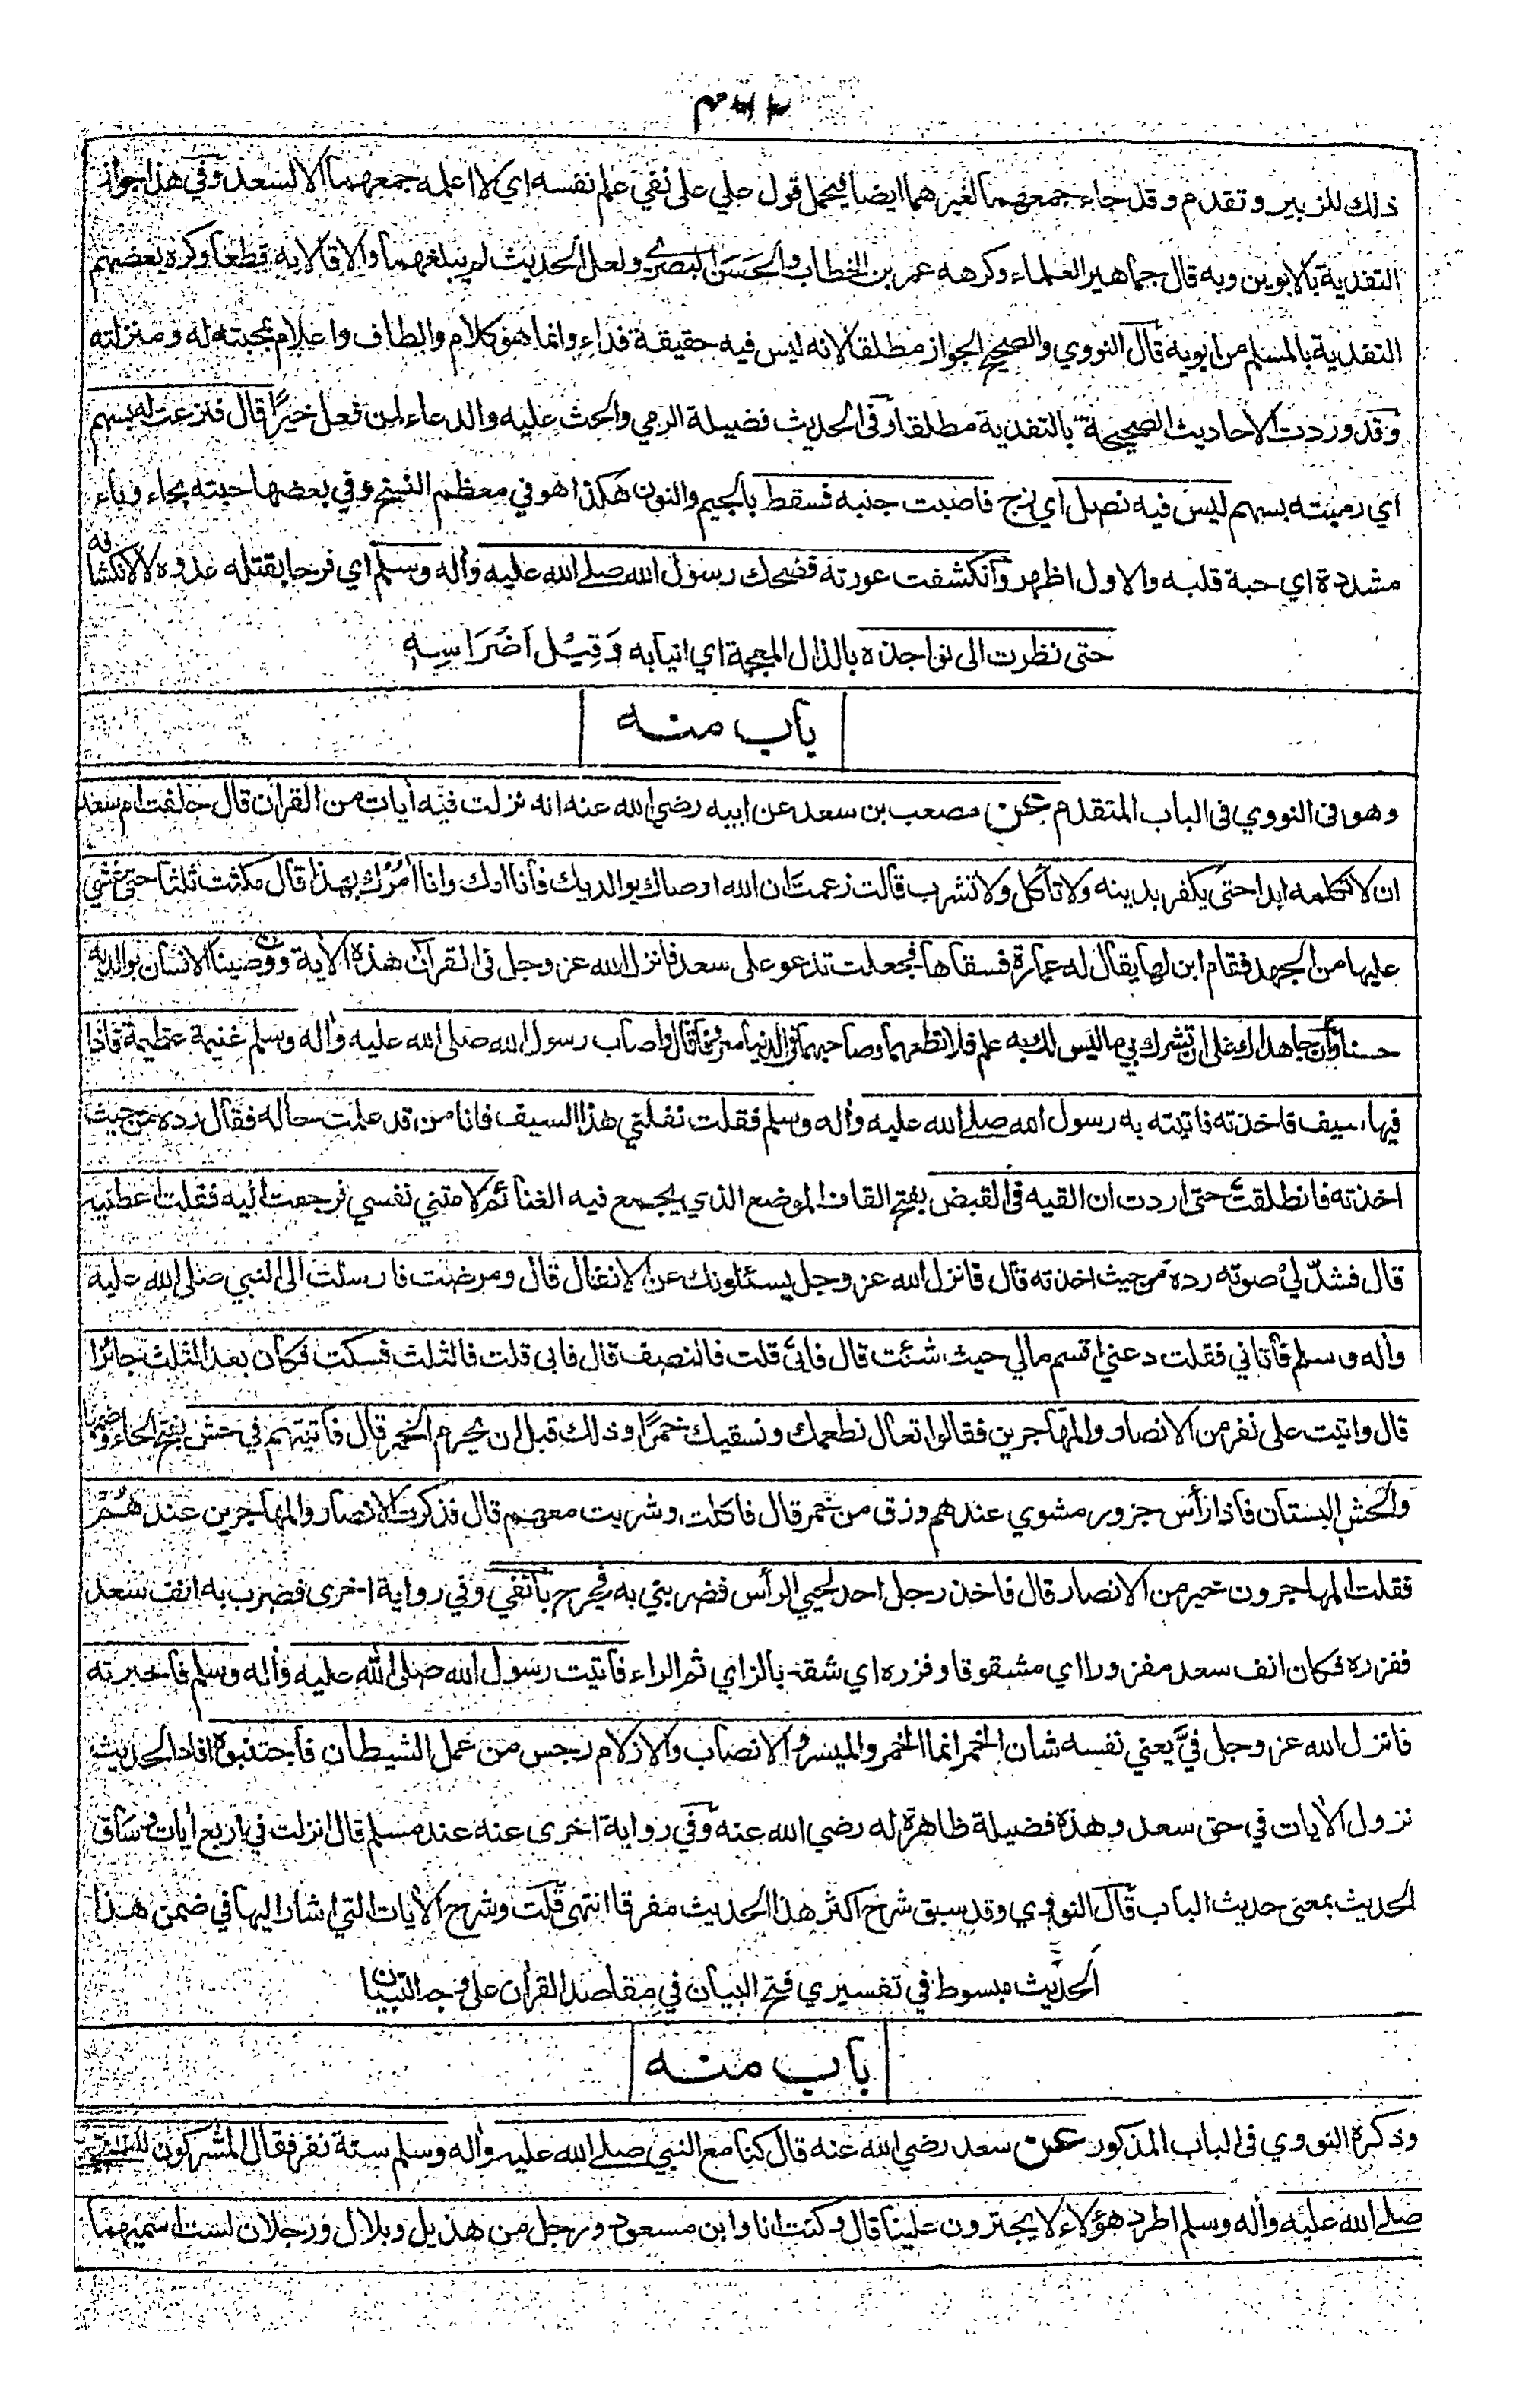 ذلك للزبير وتقدم وقد جاء جمعهما لغيرهما ايضا فيحمل قول علي على نفي علم نفسه اي لا اعلمه جمعهما الا لسعد وفي هذا جواز
التفدية بالابوين وبه قال جماهير العلماء وكرهه عمر بن الخطاب والحسن البصري ولعل الحديث لم يبلغهما والا قالا به قطعا وكره بعضهم
التفدية بالمسلم من ابويه قال النووي والصحيح الجواز مطلقا لانه ليس فيه حقيقة فداء وانما هو كلام والطاف واعلام بمحبته له ومنزلته
وقد وردت الاحاديث الصحيحة بالتفدية مطلقا وفي الحديث فضيلة الرمي والحث عليه والدعاء لمن فعل خيرًا قال فنزعت له بسهم
اي رميته بسهم ليس فيه نصل اي زج فاصبت جنبه فسقط بالجيم والنون هكذا هو في معظم النسخ وفي بعضها حبته بحاء وباء
مشددة اي حبة قلبه والاول اظهر وانكشفت عورته فضحك رسول الله صلى الله عليه وأله وسلم اي فرحا بقتله عدوه لا لانكشافه
حتى نظرت الى نواجذه بالذال المعجمة اي انيابه وَقِيْل اَضْرَاسِهِ
باب منه
وهو في النووي في الباب المتقدم عن مصعب بن سعد عن ابيه رضي الله عنه انه نزلت فيه أيات من القرأن قال حلفت ام سعد
ان لا تكلمه ابدا حتى يكفر بدينه ولا تأكل ولا تشرب قالت زعمت ان الله اوصاك بوالديك فأنا امك وانا أمُرُك بهذا قال مكثت ثلثا حتى غشي
عليها من الجهد فقام ابن لها يقال له عمارة فسقاها فجعلت تدعو على سعد فانزل الله عز وجل في القرأن هذه الأية ووصينا الانسان بوالديه
حسنا وان جاهداك على ان تشرك بي ما ليس لك به علم فلا تطعهما وصاحبهما في الدنيا معروفا قال واصاب رسول الله صلى الله عليه وأله وسلم غنيمة عظيمة فاذا
فيها سيف فاخذته فاتيته به رسول الله صلى الله عليه وأله وسلم فقلت نفلني هذا السيف فانا من قد علمت حاله فقال رده من حيث
اخذته فانطلقت حتى اردت ان القيه في القبض بفتح القاف الموضع الذي يجمع فيه الغنائم لامتني نفسي فرجعت اليه فقلت اعطنيه
قال فشدّ لي صوته رده من حيث اخذته قال فانزل الله عز وجل يسئلونك عن الانفال قال ومرضت فارسلت الى النبي صلى الله عليه
وأله وسلم فأتاني فقلت دعني اقسم مالي حيث شئت قال فابى قلت فالنصف قال فابى قلت فالثلث فسكت فكان بعد الثلث جائزا
قال واتيت على نفر من الانصار والمهاجرين فقالوا تعال نطعمك ونسقيك خمرًا وذلك قبل ان يحرم الخمر قال فأتيتهم في حش بفتح الحاء وضمها
والحش البستان فاذا رأس جزور مشوي عندهم وزق من خمر قال فاكلت وشربت معهم قال فذكرت الانصار والمهاجرين عندهُمْ
فقلت المهاجرون خير من الانصار قال فاخذ رجل احد لحيي الرأس فضربني به فجرح بأنفي وفي رواية اخرى فضرب به انف سعد
ففزره فكان انف سعد مفزورا اي مشقوقا وفزره اي شقه بالزاي ثم الراء فأتيت رسول الله صلى الله عليه وأله وسلم فاخبرته
فانزل الله عز وجل فيَّ يعني نفسه شان الخمر انما الخمر والميسر والانصاب والازلام رجس من عمل الشيطان فاجتنبوه افاد الحديث
نزول الأيات في حق سعد وهذه فضيلة ظاهرة له رضي الله عنه وفي رواية اخرى عنه عند مسلم قال انزلت في اربع أيات وساق
الحديث بمعنى حديث الباب قال النووي وقد سبق شرح اكثر هذا الحديث مفرقا انتهى قلت وشرح الأيات التي اشار اليها في ضمن هذا
الحديث مبسوط في تفسيري فتح البيان في مقاصد القرأن على وجه التبيان
باب منه
وذكره النووي في الباب المذكور عن سعد رضي الله عنه قال كنا مع النبي صلى الله عليه وأله وسلم ستة نفر فقال المشركون للنبي
صلى الله عليه وأله وسلم اطرد هؤلاء لا يجترون علينا قال وكنت انا وابن مسعود ورجل من هذيل وبلال ورجلان لست اسميهما